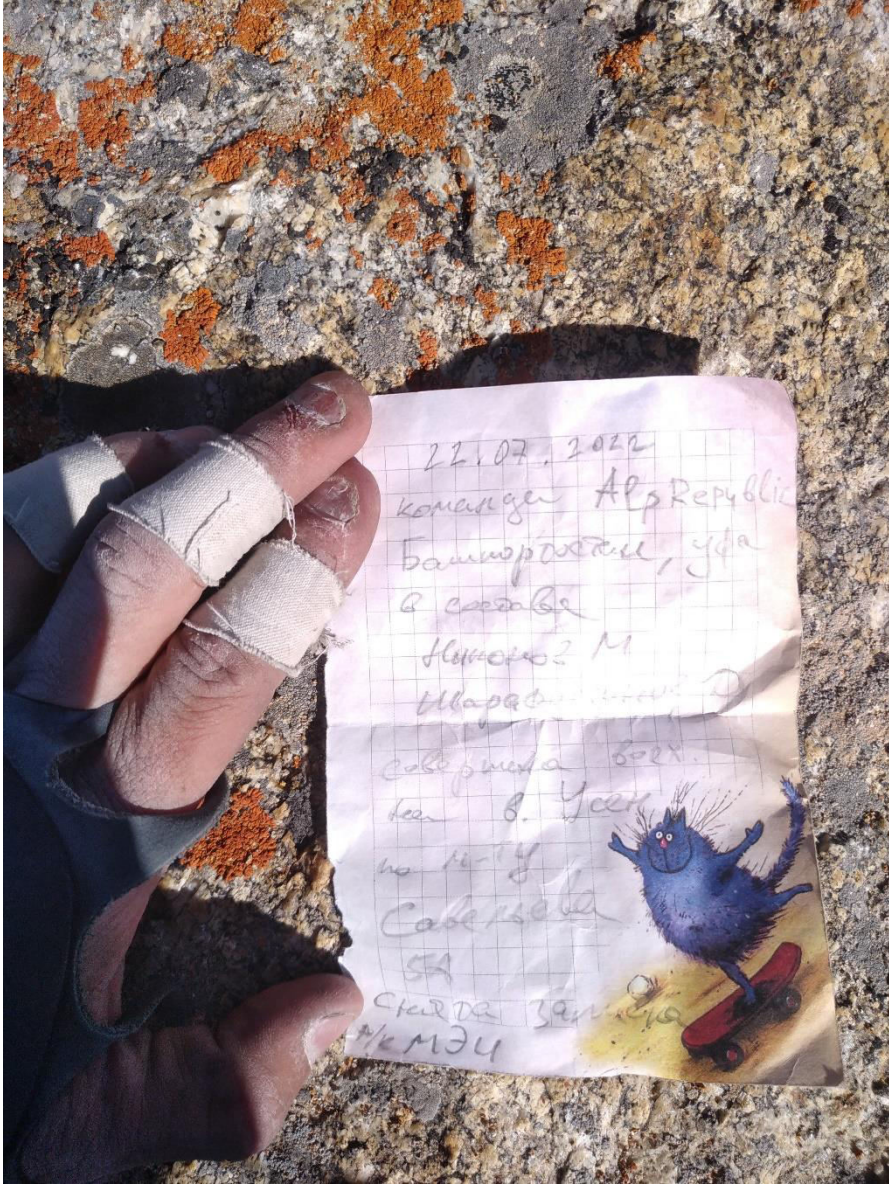 22.07.2022
команда AlpRepublic
Башкортостан, Уфа
в составе
Никонов М
совершила восх.
на в. Усен
по м-ту
Савельева
5А
снята записка
а/к МЭИ